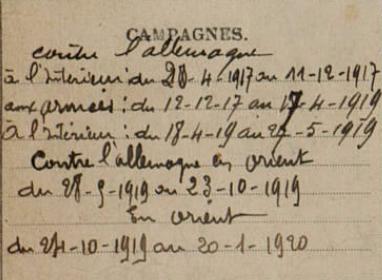 CAMPAGNES.
contre l'allemagne
à l'intérieur du 28-4-1917 au 11-12-1917
aux armées : du 12-12-17 au 17-4-1919
à l'intérieur : du 18-4-19 au 27-5-1919
Contre l'allemagne en orient
du 28-5-1919 au 23-10-1919
En orient
du 24-10-1919 au 20-1-1920